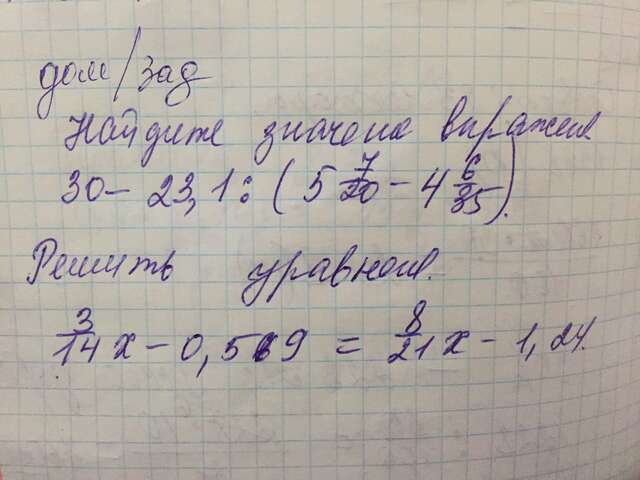 дом/зад
Найдите значение выражения
30 - 23,1 : (5 7/20 - 4 6/35).
Решить уравнение.
3/14 x - 0,59 = 8/21 x - 1,24.